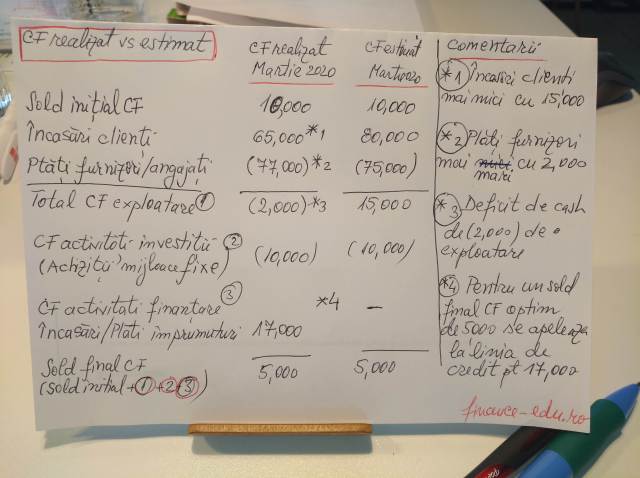 CF realizat vs estimat
CF realizat
Martie 2020
CF estimat
Martie 2020
Comentarii
Sold inițial CF 10,000 10,000
Încasări clienti 65,000 *1 80,000
Plăți furnizori/angajați (77,000) *2 (75,000)
Total CF exploatare 1 (2,000) *3 15,000
CF activitati investitii 2
(Achizitii mijloace fixe) (10,000) (10,000)
CF activitati finantare 3 *4 –
Încasări/Plati imprumuturi 17,000
Sold final CF 5,000 5,000
(sold initial+1+2+3)
*1 Încasări clienti
mai mici cu 15,000
*2 Plăți furnizori
mai mici cu 2,000
mari
*3 Deficit de cash
de (2,000) de
exploatare
*4 Pentru un sold
final CF optim
de 5000 se apeleaza
la linia de
credit pt 17,000
finance-edu.ro